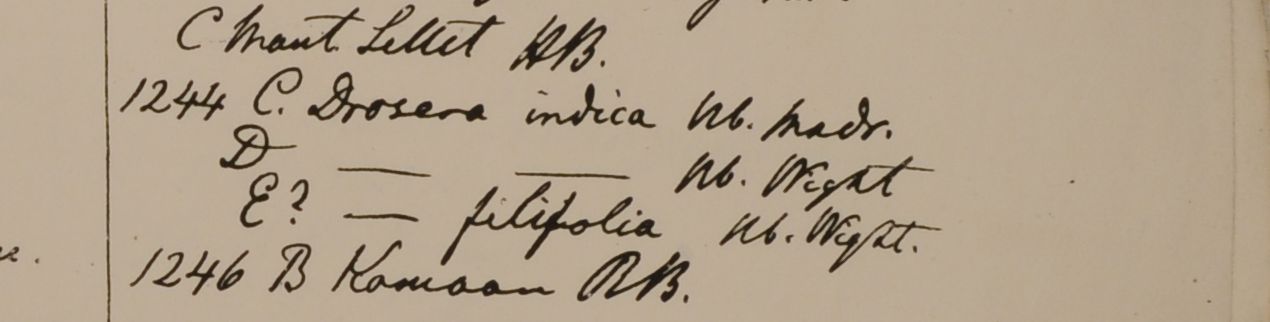 C Mont. Sillet HB.
1244 C. Drosera indica Hb. Madr.
D — — Hb. Wight
E? — filifolia Hb. Wight.
1246 B Kamaon RB.